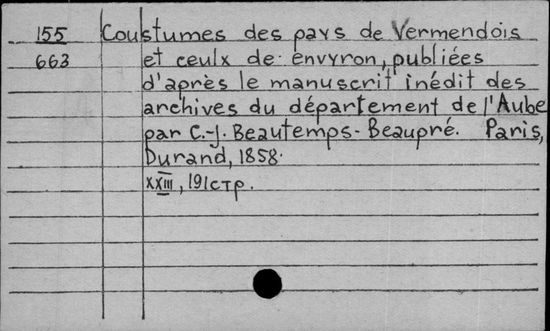 155 Coustumes des pays de Vermendois
663 et ceulx de envyron, publiées
d'après le manuscrit inédit des
archives du département de l'Aube
par C.-J. Beautemps-Beaupré. Paris,
Durand, 1858.
XXIII, 191 стр.